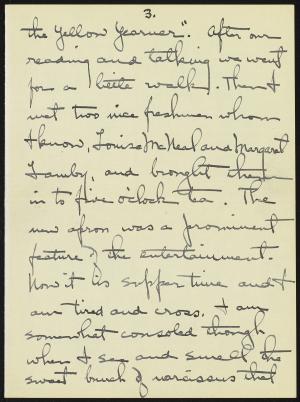 3.
the Yellow Yearner". After our
reading and talking we went
for a little walk. Then I
met two nice freshmen whom
I know, Louise McNeal and Margaret
Lamby, and brought them
in to five o'clock tea. The
new apron was a prominent
feature of the entertainment.
Now it is supper time and I
am tired and cross. I am
somewhat consoled though
when I see and smell the
sweet bunch of narcissus that